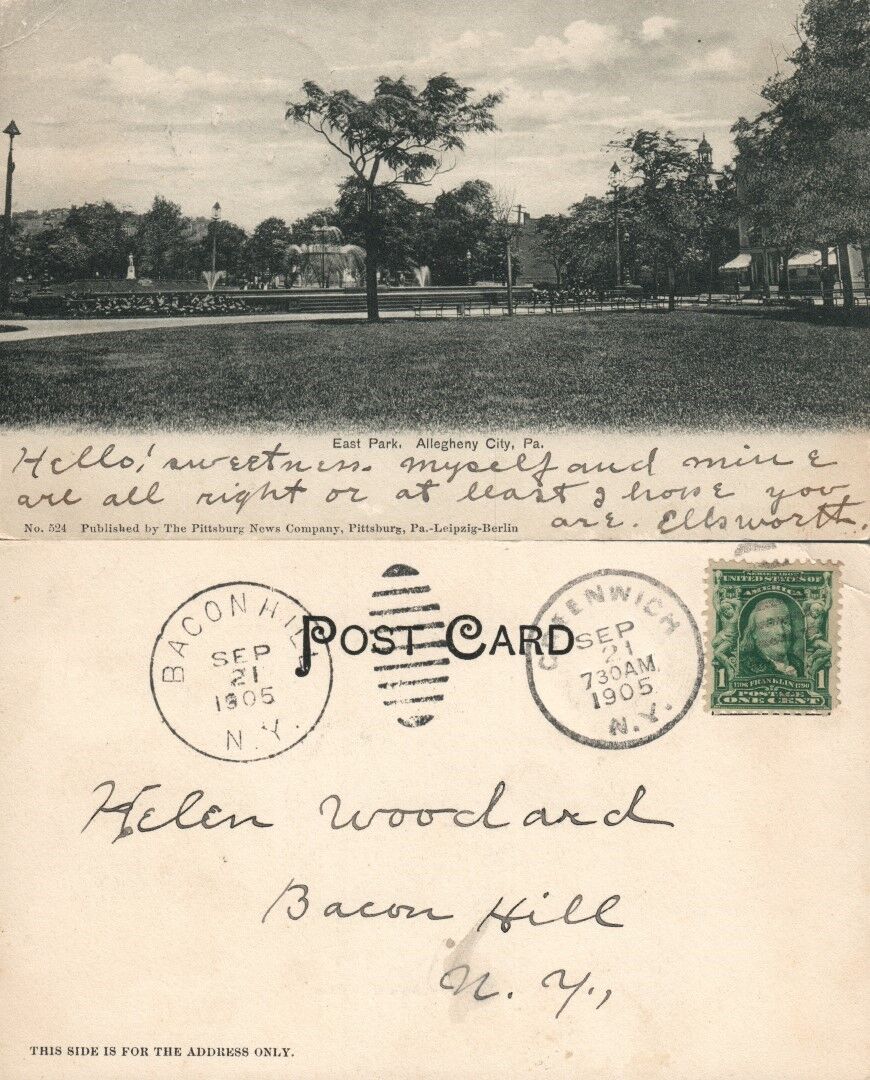 East Park, Allegheny City, Pa.
Hello! sweetness. myself and mine
are all right or at least I hope you
are. Ellsworth.
No. 524 Published by The Pittsburg News Company, Pittsburg, Pa.-Leipzig-Berlin
BACON HILL
SEP
21
1905
N.Y.
POST CARD
GREENWICH
SEP
21
730AM
1905
N.Y.
SERIES 1902
UNITED STATES OF
AMERICA
1706 FRANKLIN 1790
1 POSTAGE 1
ONE CENT
Helen Woodard
Bacon Hill
N. Y.,
THIS SIDE IS FOR THE ADDRESS ONLY.